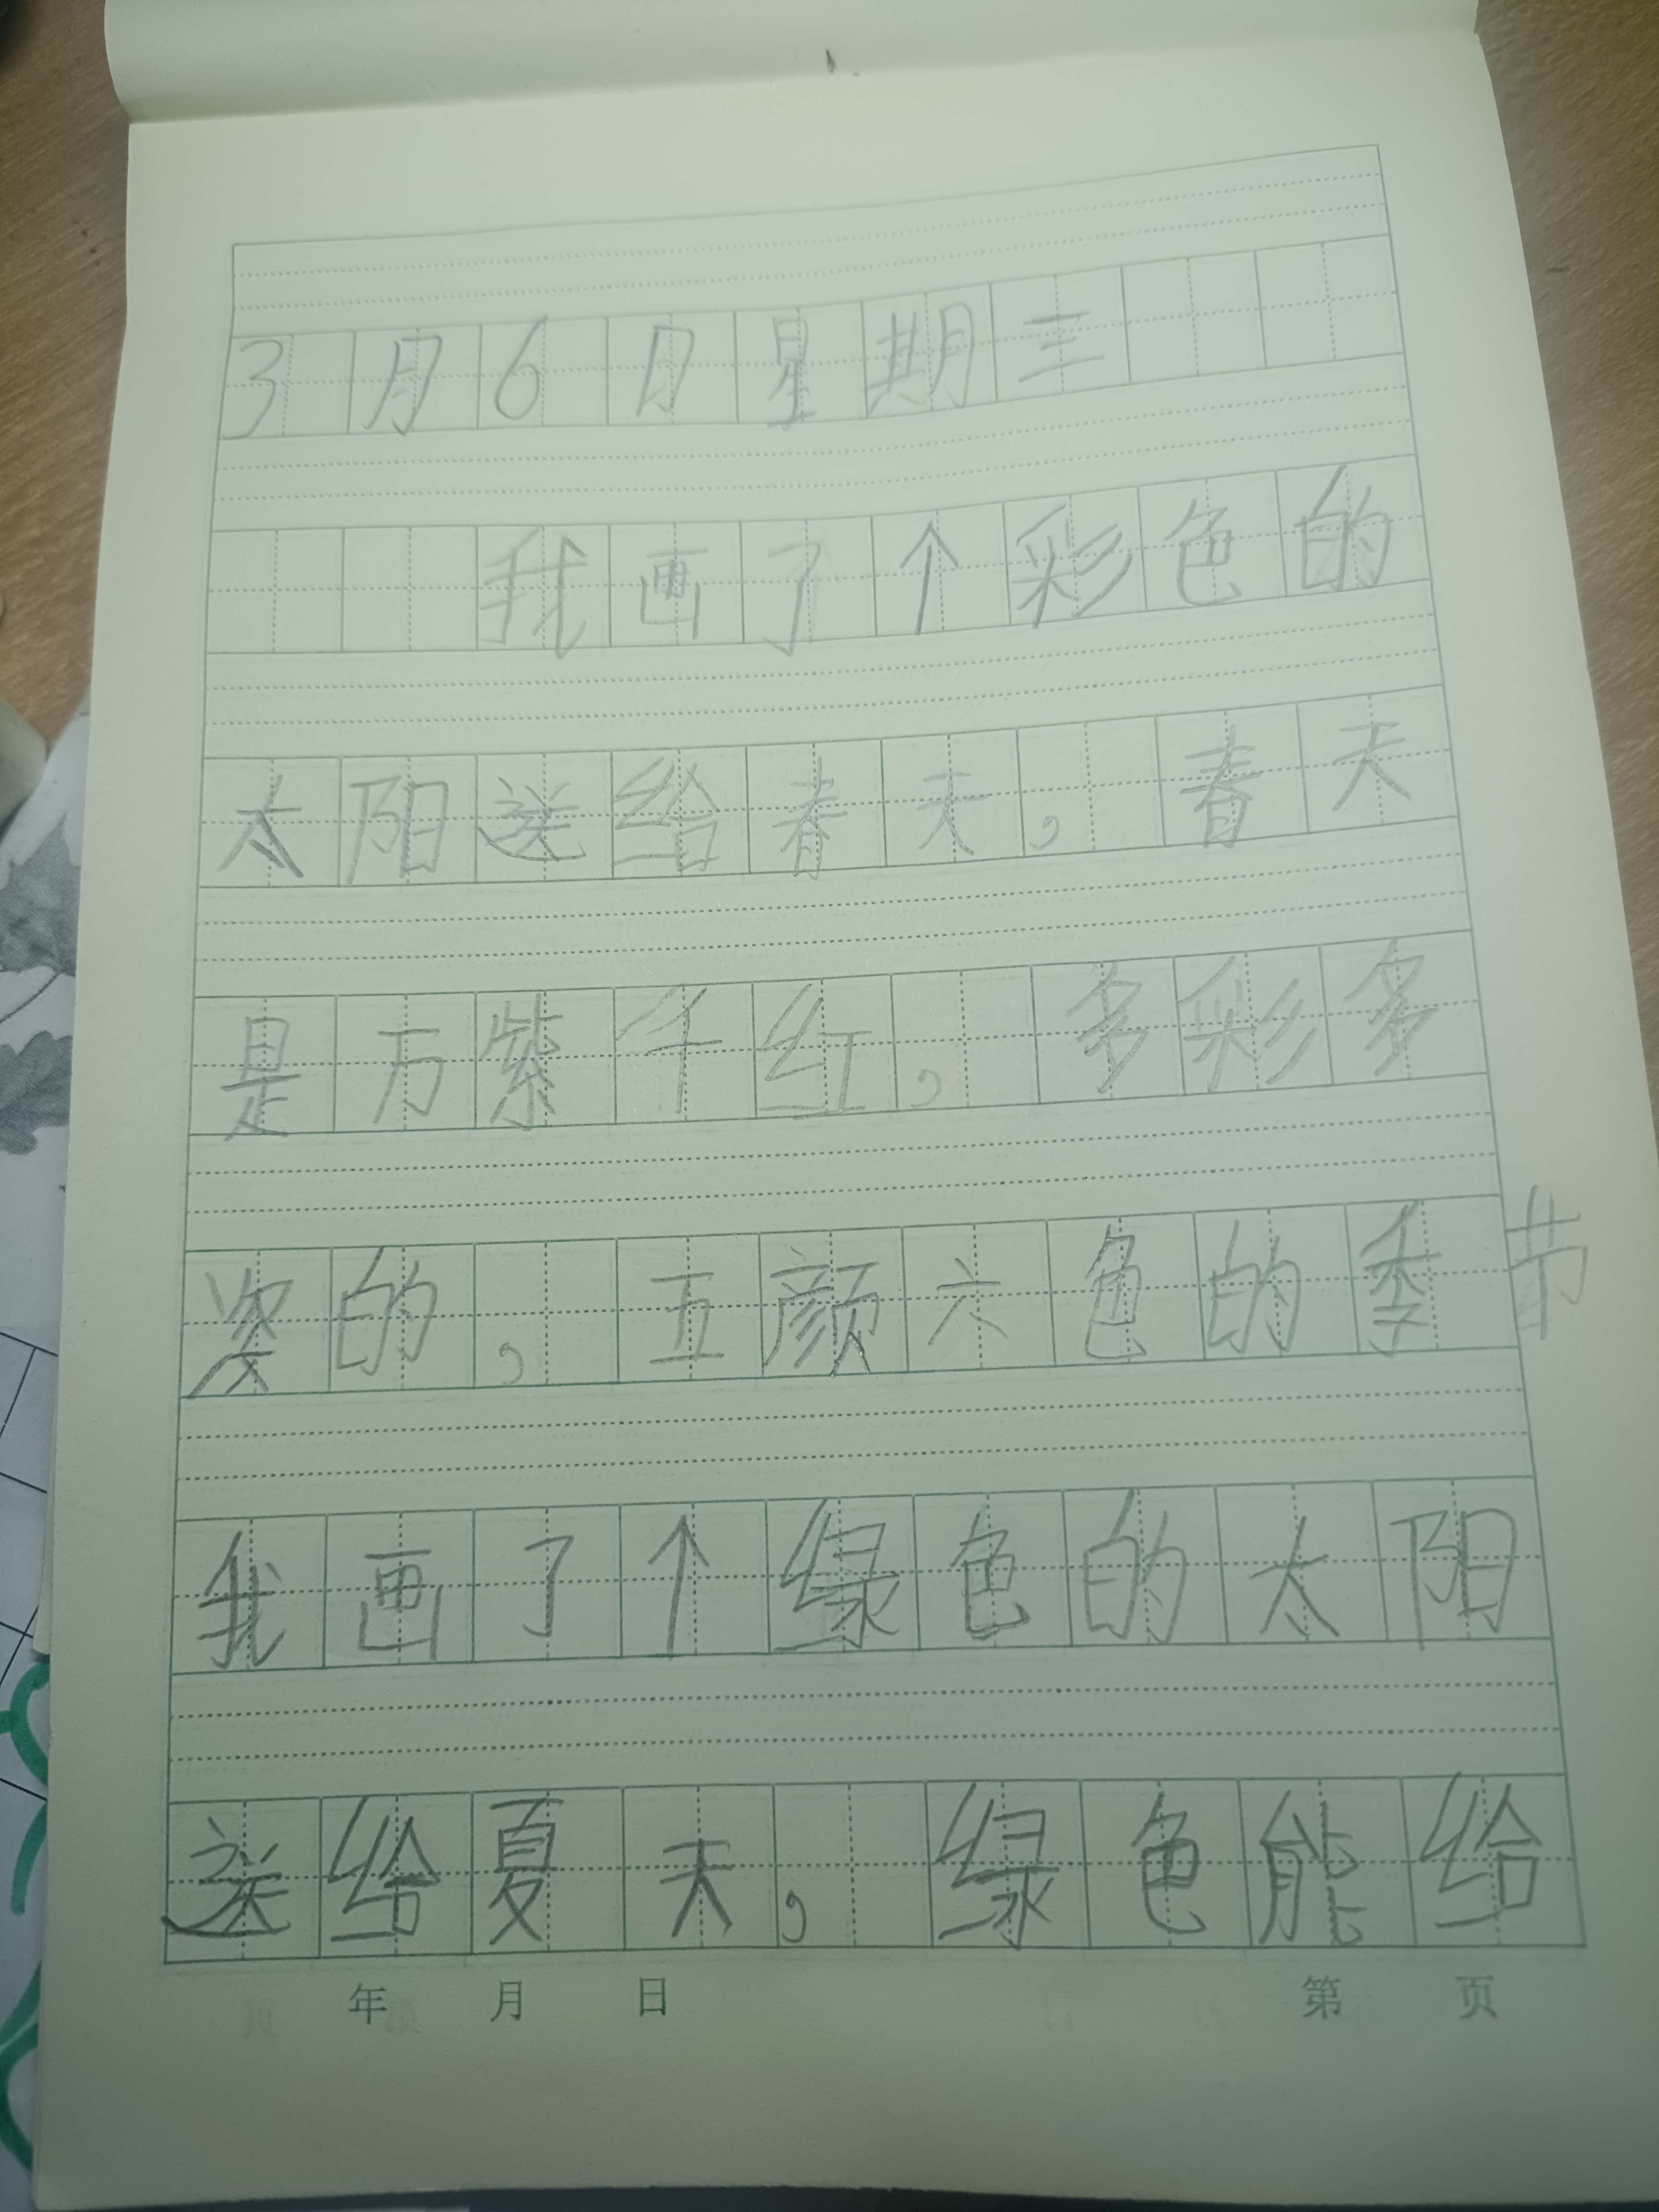 3月6日星期三
我画了个彩色的
太阳送给春天，春天
是万紫千红，多彩多
姿的，五颜六色的季节
我画了个绿色的太阳
送给夏天，绿色能给
年 月 日 第 页